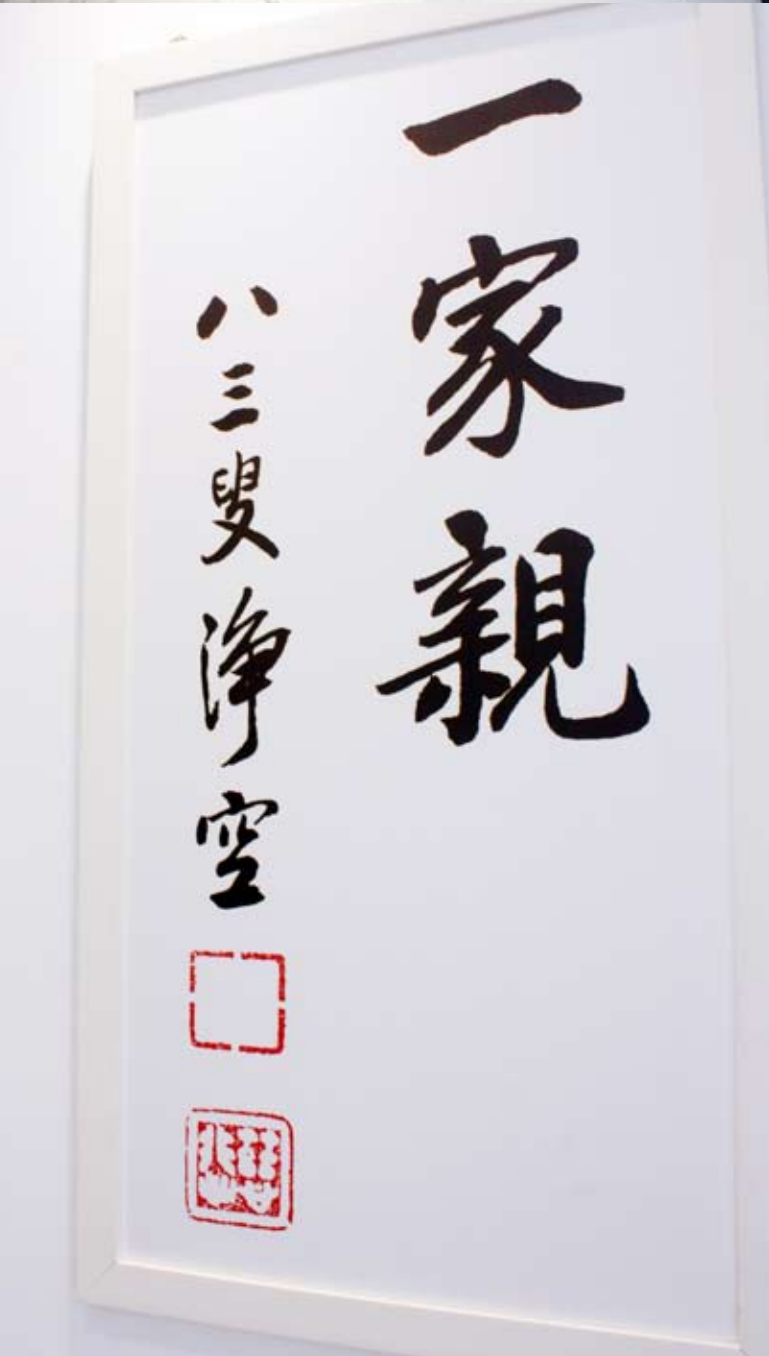 一家親
八三叟淨空